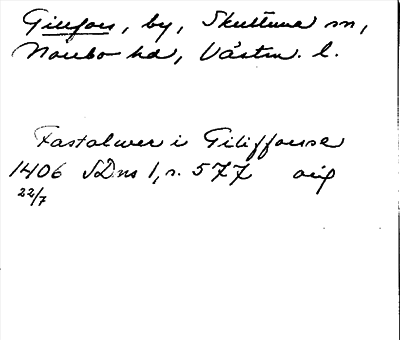 Gillfors, by, Skultuna sn,
Norrbo hd, Västm. l.
Fastolwer i Gilifforsse
1406 SD ns 1, s. 577 orig
22/7